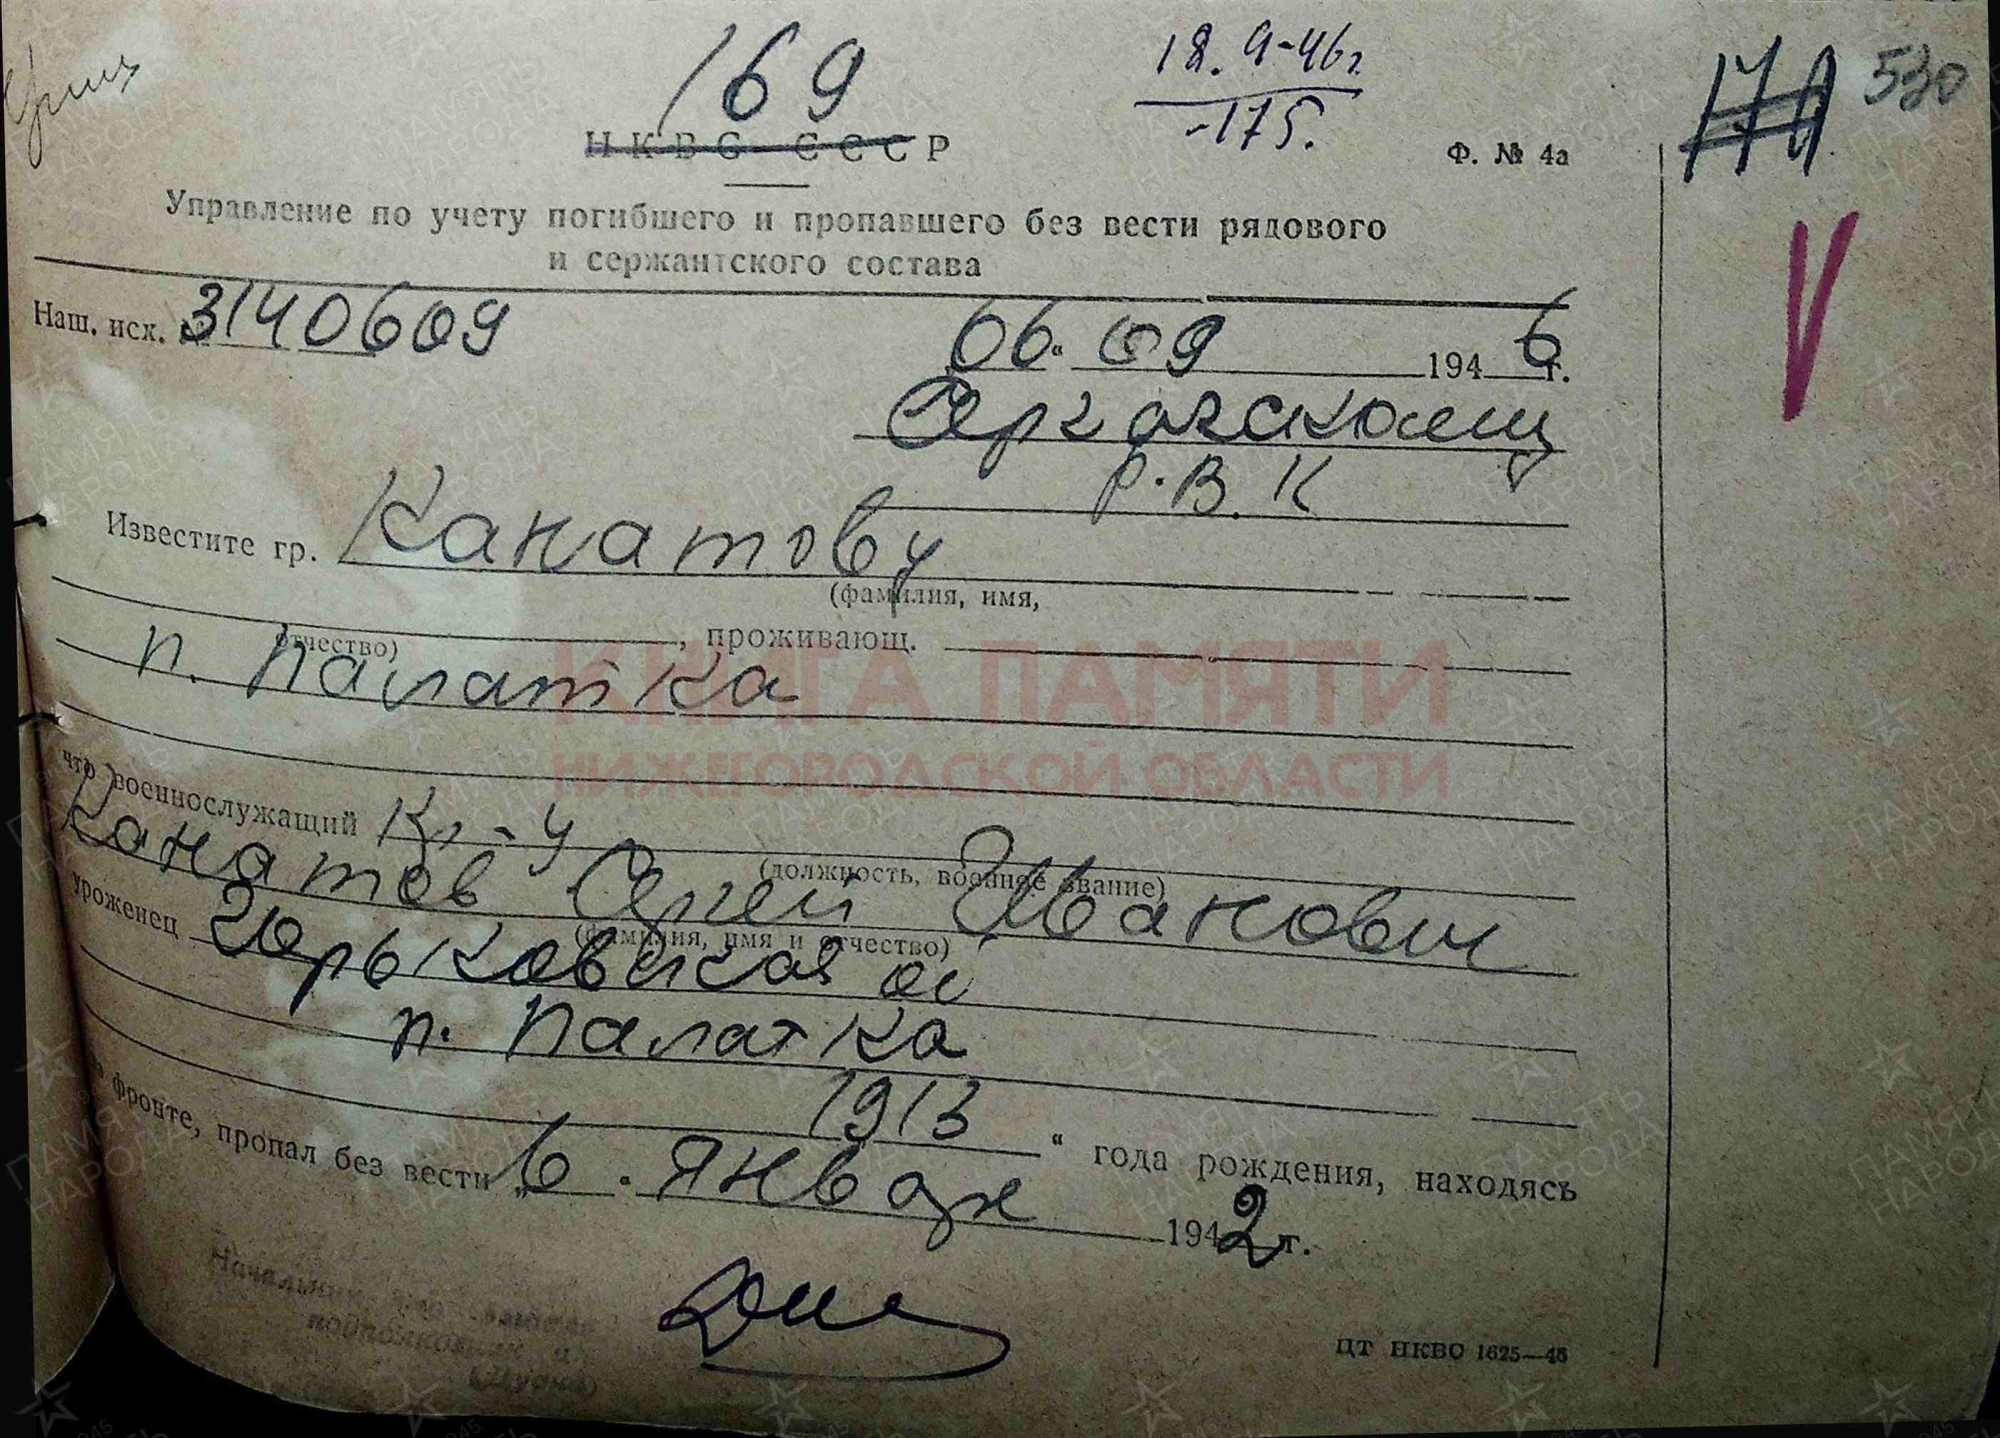 169
18.9-46г.
-175.
530
Н К В С СССР
Ф. № 4а
Управление по учету погибшего и пропавшего без вести рядового
и сержантского состава
Наш. исх. № 3140609
06 " 09 1946 г.
Сергачскому
Р.В.К
Известите гр. Канатову
(фамилия, имя,
отчество) , проживающ.
п. Палатка
КНИГА ПАМЯТИ
НИЖЕГОРОДСКОЙ ОБЛАСТИ
что военнослужащий кр-ц
(должность, военное звание)
Канатов Сергей Иванович
(фамилия, имя и отчество)
уроженец Горьковская
п. Палатка
1913 " года рождения, находясь
на фронте, пропал без вести „ 6. январе 1942 г.
ЦТ НКВС 1625—46